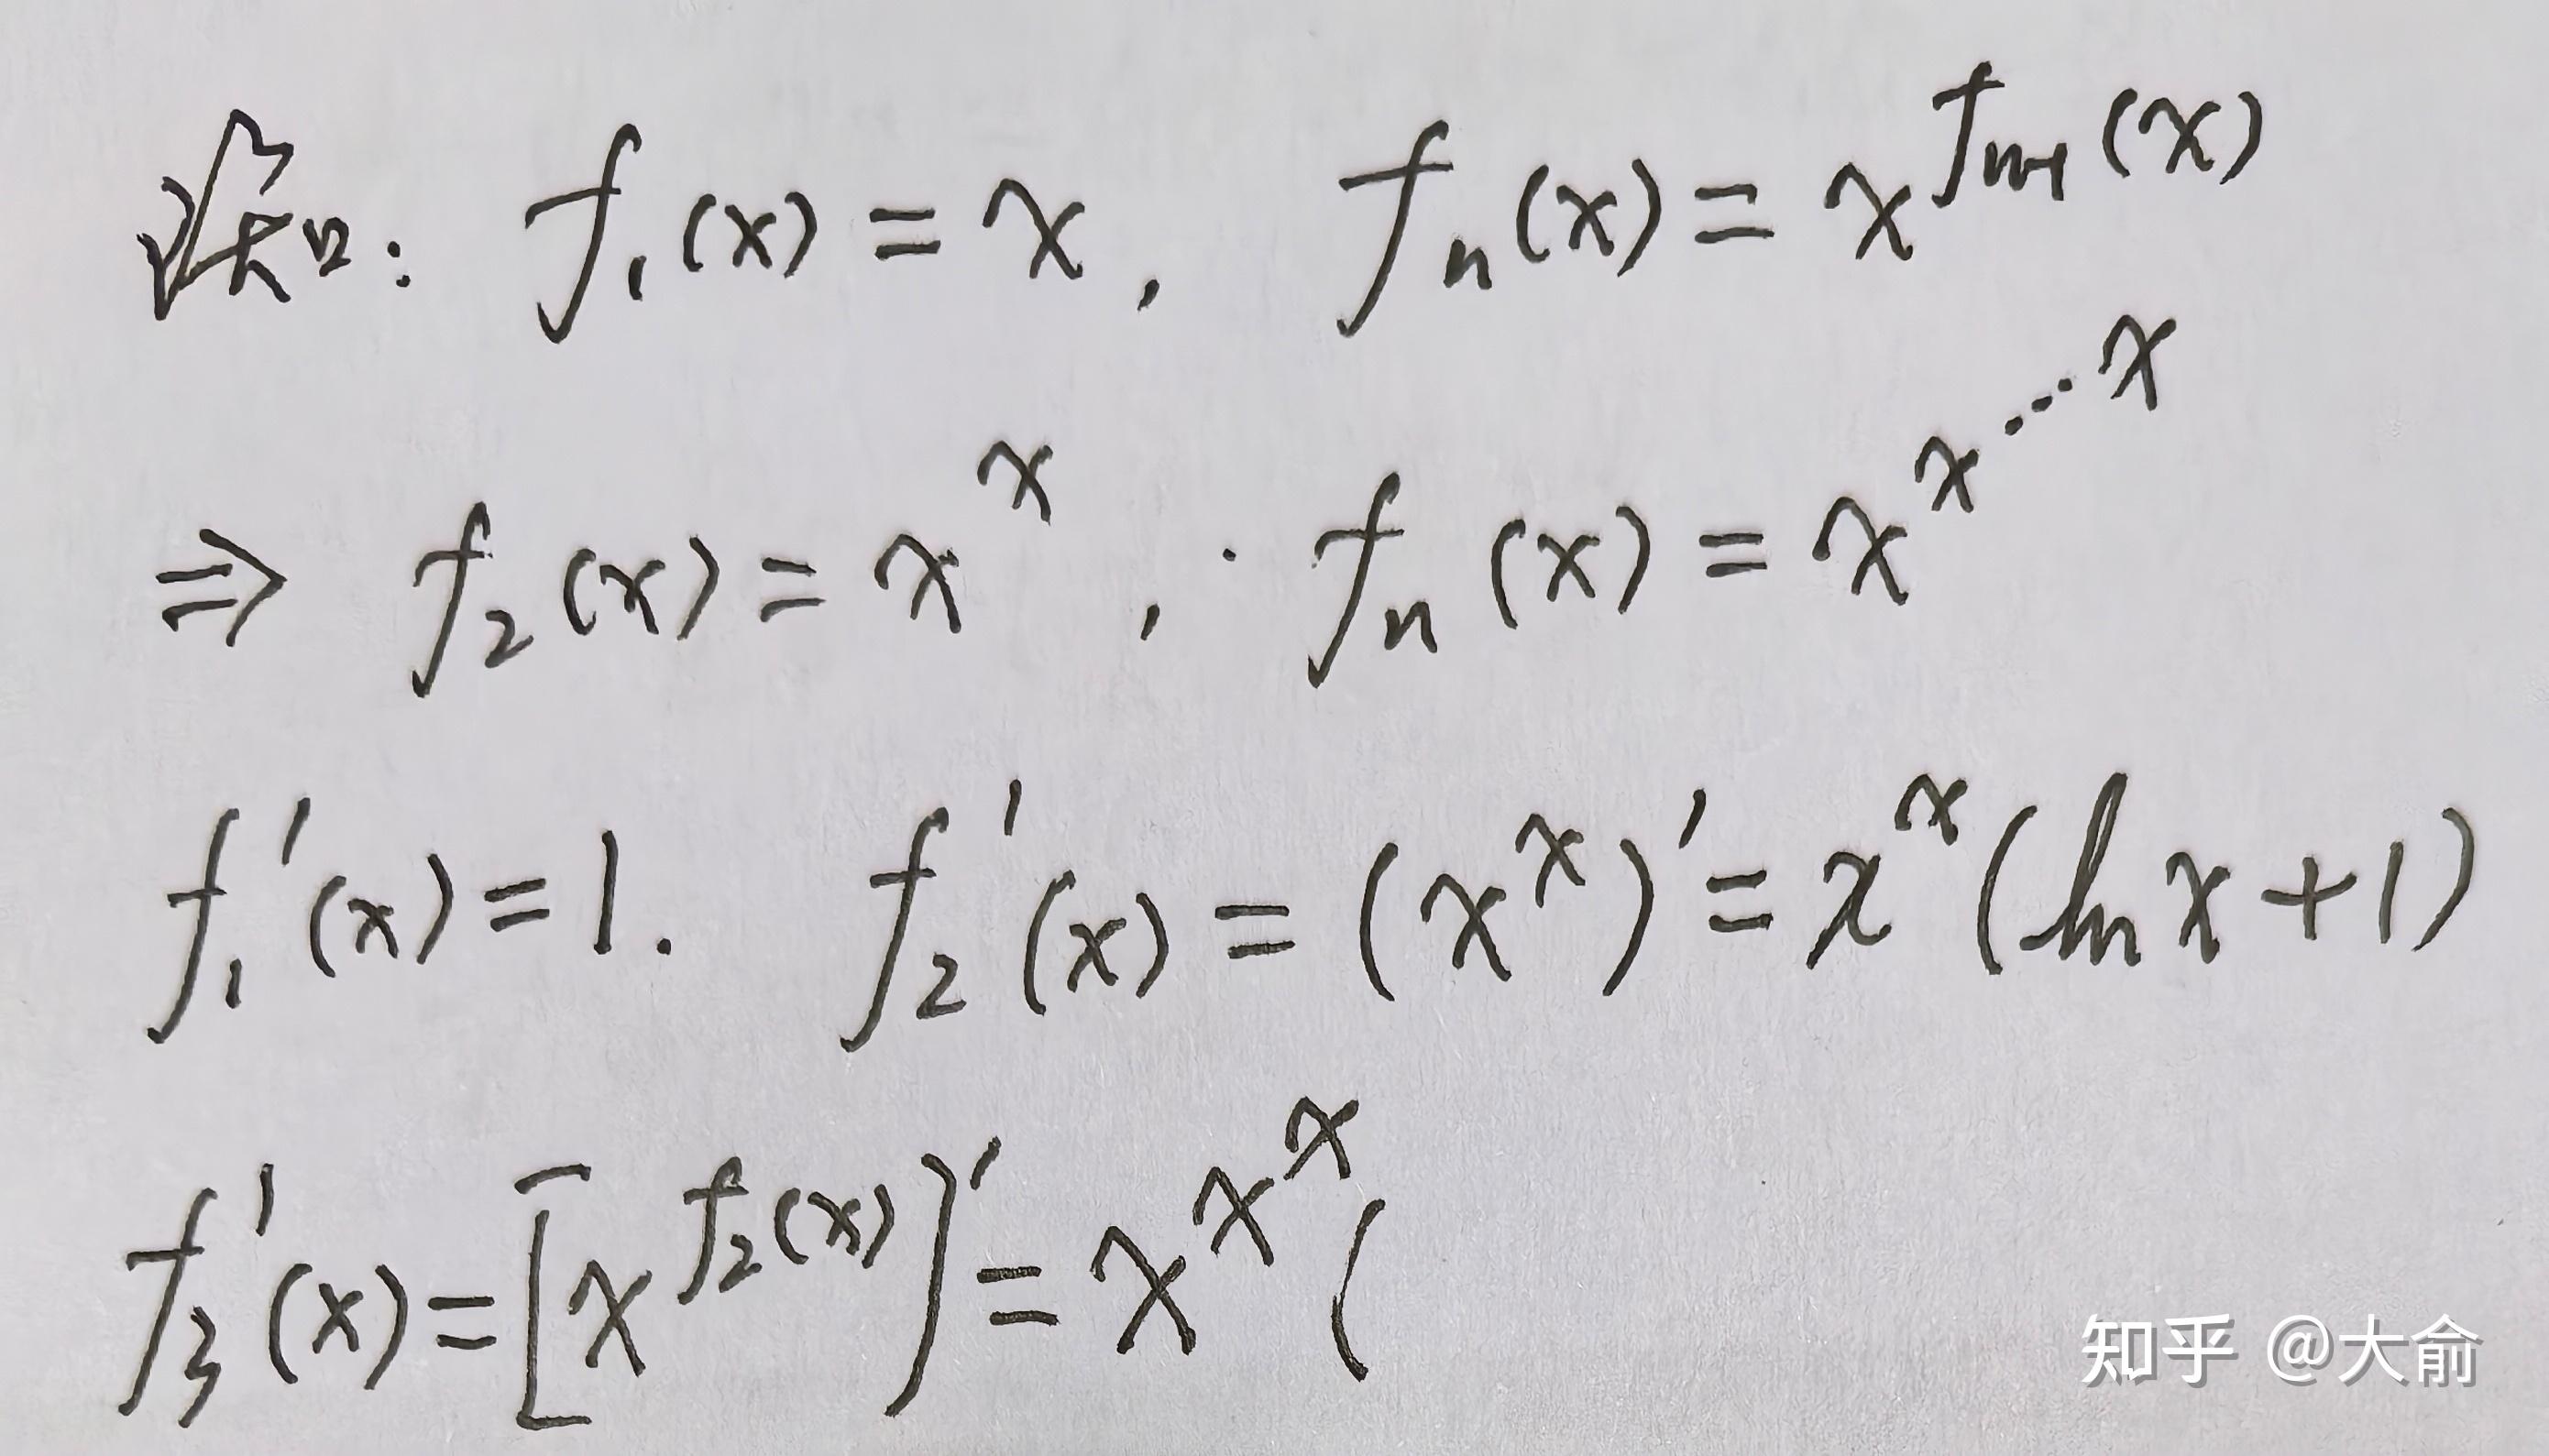 谈: f₁(x) = x, fₙ(x) = x^{fₙ₋₁(x)}
⇒ f₂(x) = x^x, · fₙ(x) = x^{x^{⋰^x}}
f₁'(x) = 1. f₂'(x) = (x^x)' = x^x (ln x + 1)
f₃'(x) = [x^{f₂(x)}]' = x^{x^x} (
知乎 @大俞